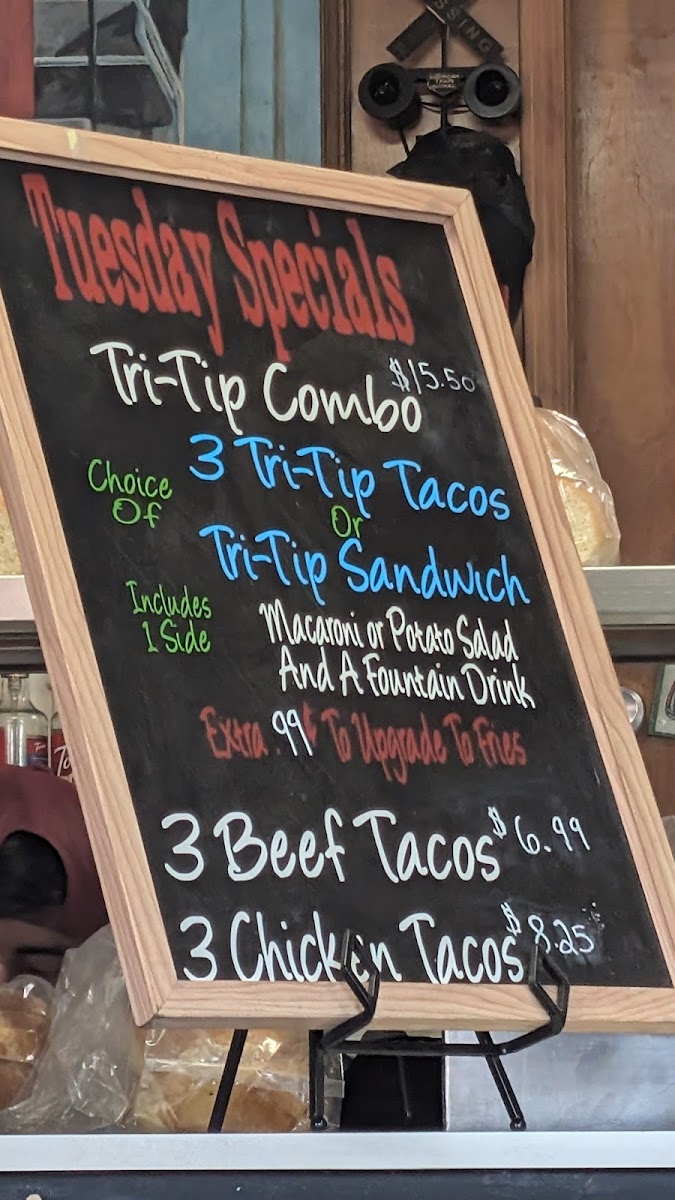 SSING
Tuesday Specials
Tri-Tip Combo $15.50
Choice Of
3 Tri-Tip Tacos
Or
Tri-Tip Sandwich
Includes
1 Side
Macaroni or Potato Salad
And A Fountain Drink
Extra .99¢ To Upgrade To Fries
3 Beef Tacos $6.99
3 Chicken Tacos $8.25